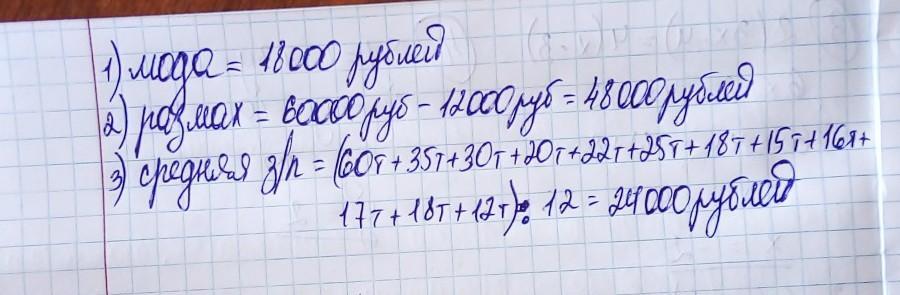 1) мода = 18000 рублей
2) размах = 60000 руб - 12000 руб = 48000 рублей
3) средняя з/п = (60т + 35т + 30т + 20т + 22т + 25т + 18т + 15т + 16т +
17т + 18т + 12т) : 12 = 24000 рублей